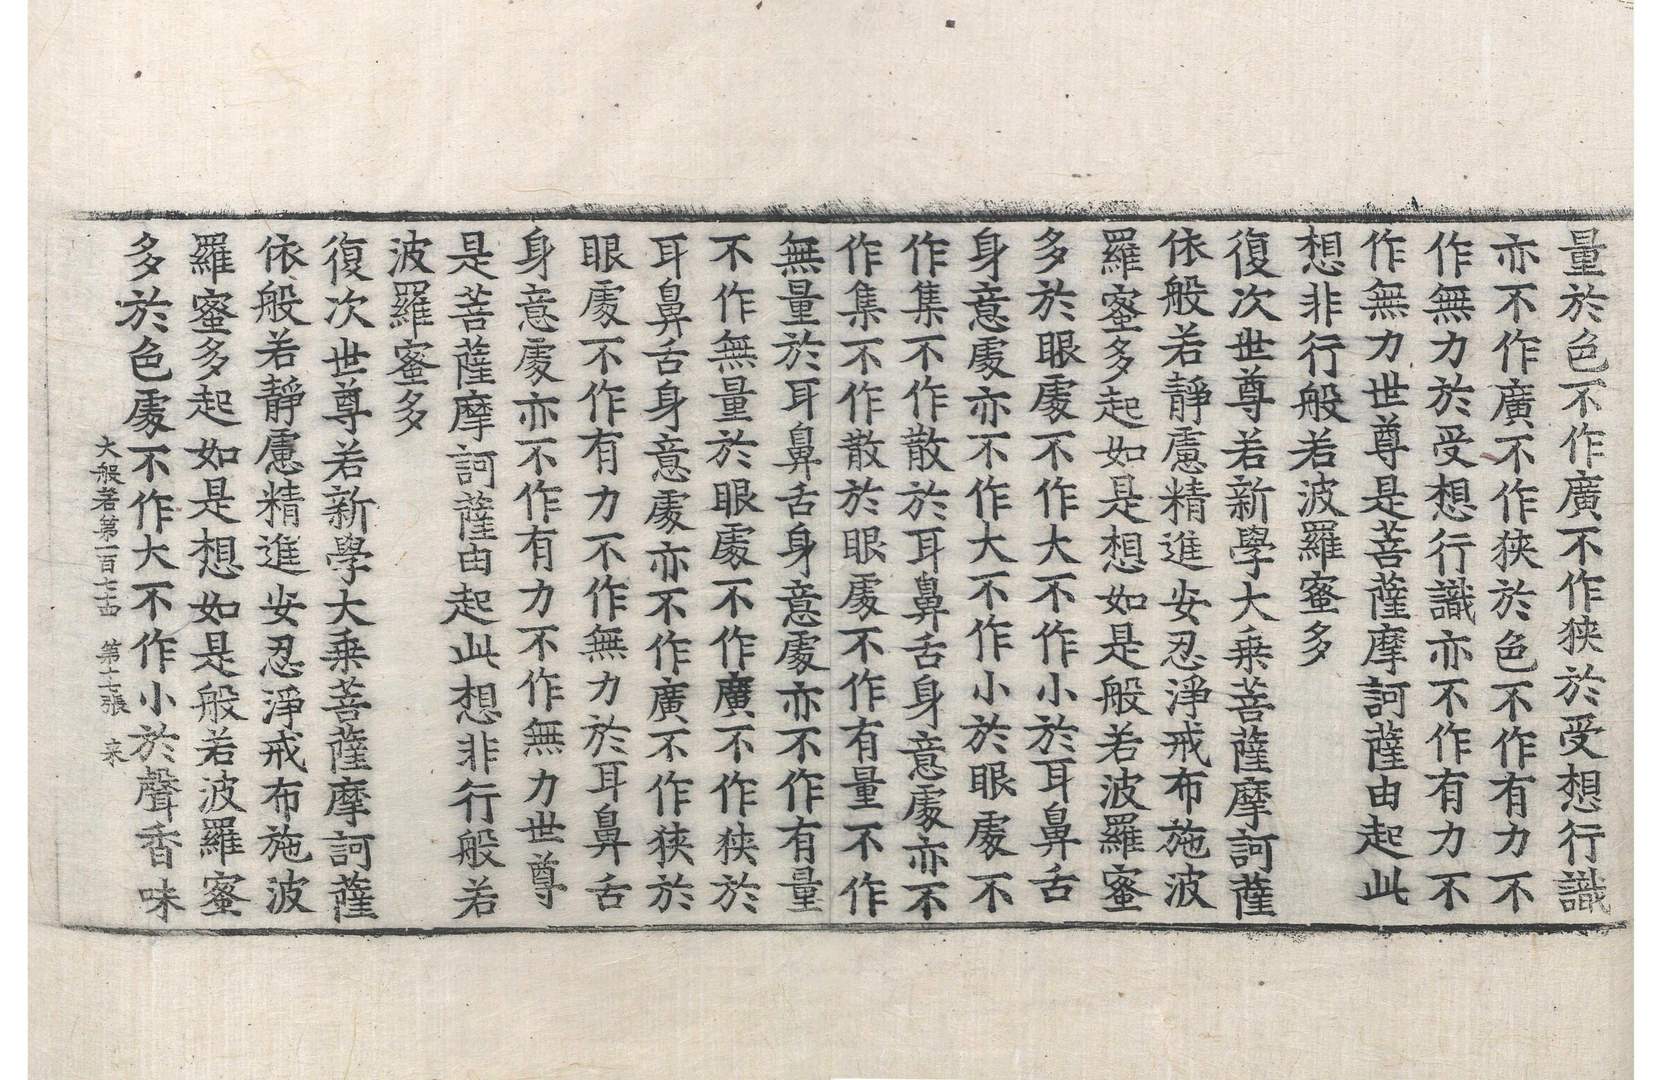 量於色不作廣不作狹於受想行識
亦不作廣不作狹於色不作有力不
作無力於受想行識亦不作有力不
作無力世尊是菩薩摩訶薩由起此
想非行般若波羅蜜多
復次世尊若新學大乗菩薩摩訶薩
依般若靜慮精進安忍淨戒布施波
羅蜜多起如是想如是般若波羅蜜
多於眼處不作大不作小於耳鼻舌
身意處亦不作大不作小於眼處不
作集不作散於耳鼻舌身意處亦不
作集不作散於眼處不作有量不作
無量於耳鼻舌身意處亦不作有量
不作無量於眼處不作廣不作狹於
耳鼻舌身意處亦不作廣不作狹於
眼處不作有力不作無力於耳鼻舌
身意處亦不作有力不作無力世尊
是菩薩摩訶薩由起此想非行般若
波羅蜜多
復次世尊若新學大乗菩薩摩訶薩
依般若靜慮精進安忍淨戒布施波
羅蜜多起如是想如是般若波羅蜜
多於色處不作大不作小於聲香味
大般若第一百七十四　第十七張　来